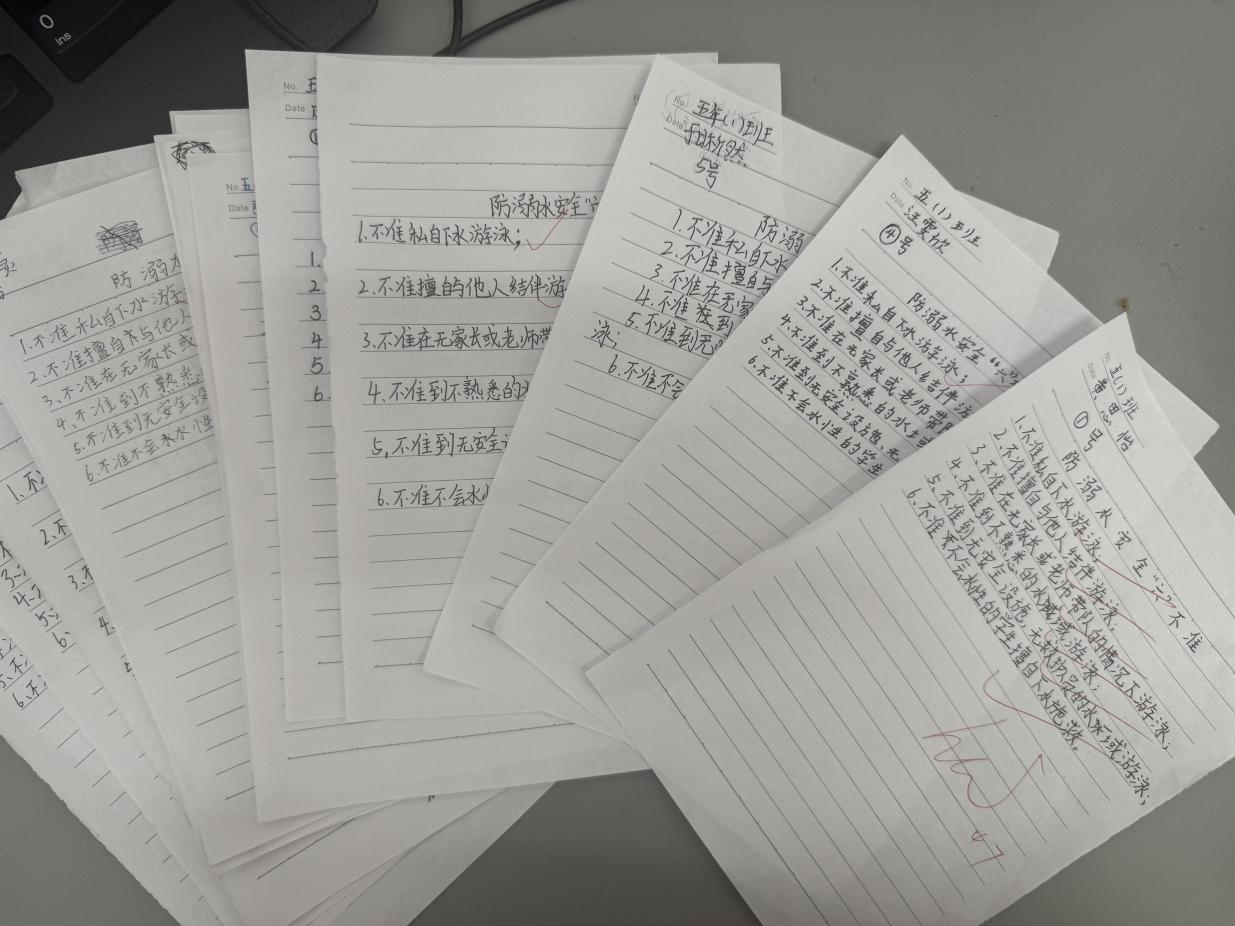 0
Ins
防溺水
1.不准私自下水游
2.不准擅自与他人
3.不准在无家长或
4.不准到不熟悉
5.不准到无安全设
6.不准不会水性
No. 五
Date
No. 五
Date
1.
2
3
4
5
6.
防溺水安全“六
1.不准私自下水游泳;
2.不准擅自与他人结伴游
3.不准在无家长或老师带
4.不准到不熟悉的水
5,不准到无安全设
6.不准不会水
No. 五年(1)班
Date
5号
防溺
1.不准私自下水
2.不准擅自与
3.不准在无家
4.不准到
5.不准到无
泳;
6.不准不会
No. 五(1)班
Date 汪雯欣
④号
防溺水安全“六
1.不准私自下水游泳;
2.不准擅自与他人结伴游
3.不准在无家长或老师带队
4.不准到不熟悉的水域
5.不准到无安全设施,无
6.不准不会水性的学生
No. 五(1)班
Date 黄思怡
①号
防溺水安全“六”不准
1.不准私自下水游泳;
2.不准擅自与他人结伴游泳;
3.不准在无家长或老师带队的情况下游泳;
4.不准到不熟悉的水域游泳;
5.不准到无安全设施,无救护员的水域游泳;
6.不准不会水性的学生擅自下水施救。
4.7